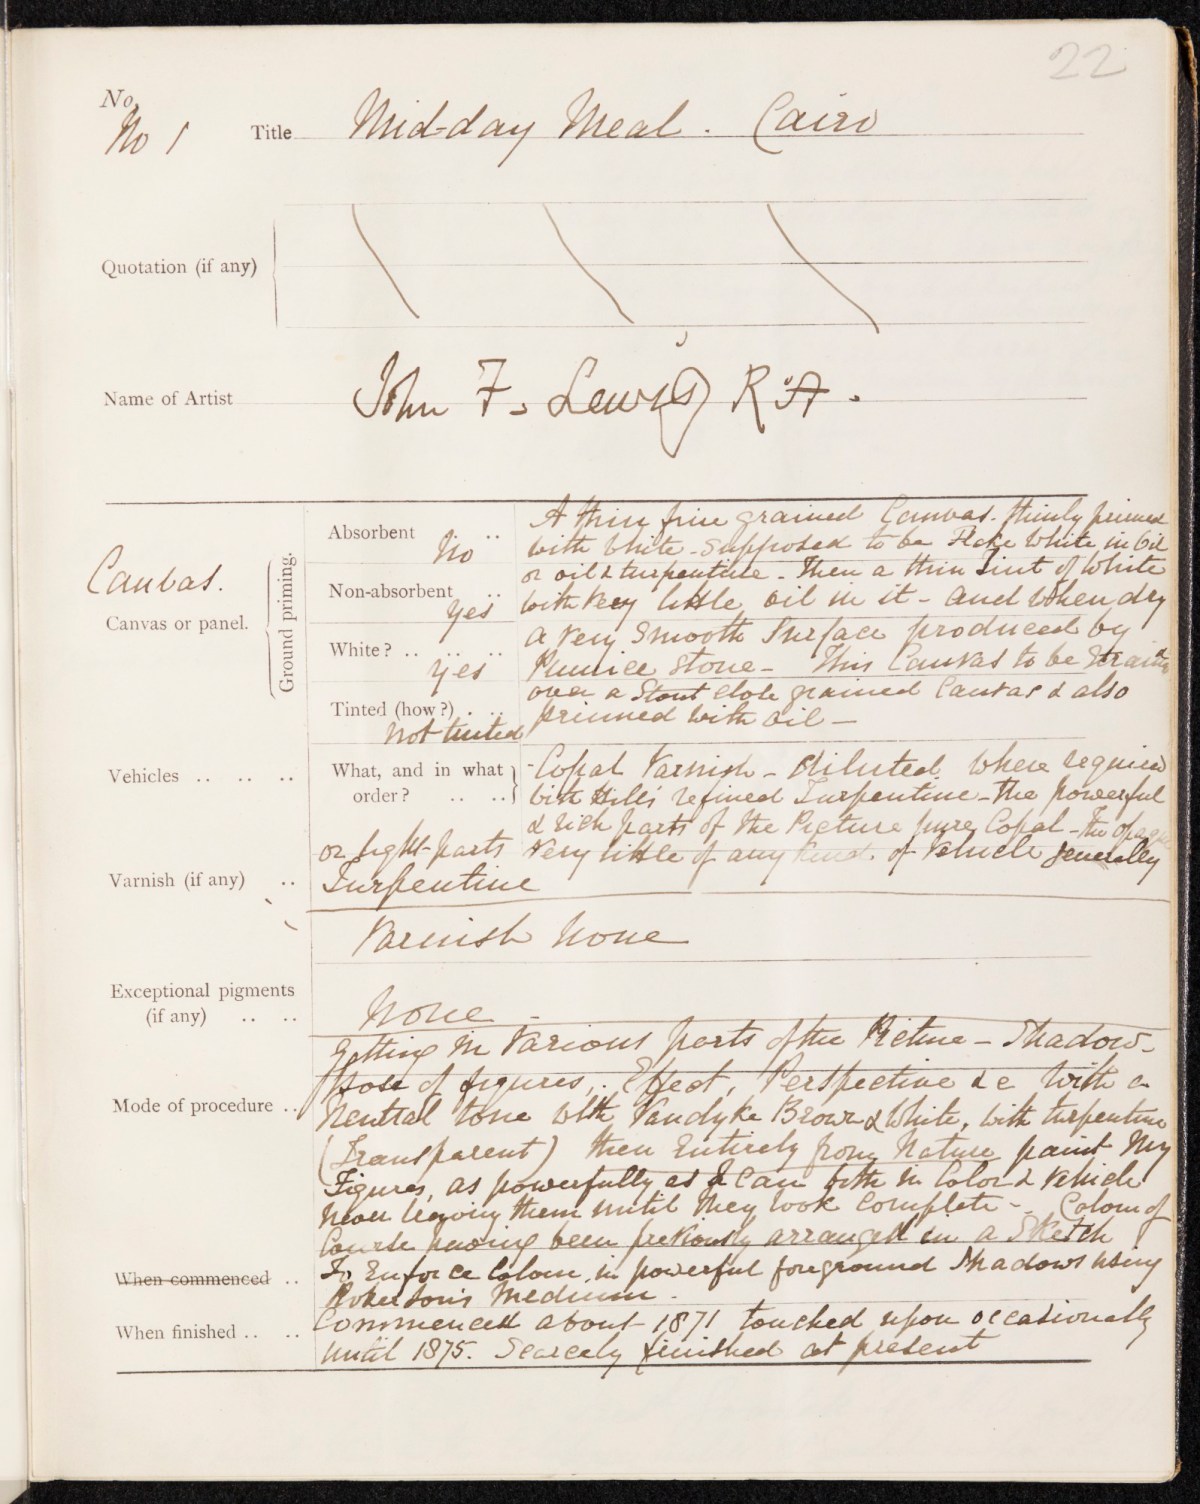 22
No.
No 1 Title Mid-day Meal. Cairo
Quotation (if any)
Name of Artist John F. Lewis R.A.
Canvas.
Canvas or panel.
Ground priming.
Absorbent .. No
Non-absorbent .. yes
White? .. .. .. yes
Tinted (how?) . .. Not tinted
A thin fine grained Canvas. thinly primed
with White - supposed to be Flake White in Oil
or oil & turpentine - then a thin Tint of White
with very little oil in it - and when dry
a very Smooth Surface produced by
Pumice Stone - This Canvas to be
over a Stout close grained Canvas & also
primed with oil -
Vehicles .. .. .. What, and in what order? .. ..
Copal Varnish - diluted where required
with Hills refined Turpentine - the powerful
& rich parts of the Picture pure Copal - The opaque
or light parts very little of any kind of Vehicle generally
Turpentine
Varnish (if any) ..
Varnish None
Exceptional pigments
(if any) .. ..
None -
Mode of procedure ..
Getting in Various parts of the Picture - Shadow -
pose of figures, Effect, Perspective &c With a
Neutral tone with Vandyke Brown & White, with turpentine
(Transparent) then Entirely from Nature paint My
Figures, as powerfully as I can both in Color & Vehicle
Never leaving them until they look complete - Colour of
Course having been previously arranged in a Sketch
To Enforce Colour in powerful foreground Shadows using
Roberson's Medium.
When commenced ..
When finished .. ..
Commenced about 1871 touched upon occasionally
until 1875. Scarcely finished at present